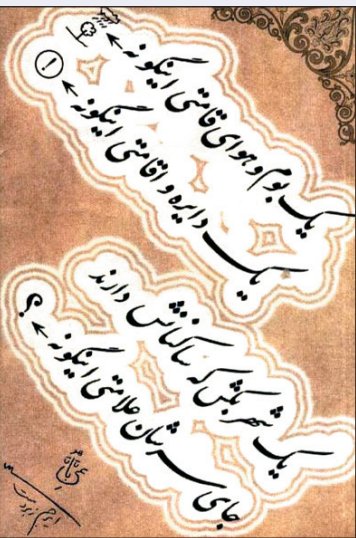 یک بوم و هوای قامتی اینگونه
یک دایره و اقامتی اینگونه
یک شهر بکش که ساکنانش دارند
جای سرشان علامتی اینگونه ؟